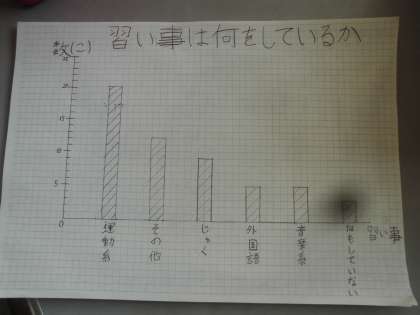 習い事は何をしているか
数(こ)
15
10
5
0
運動系
その他
じゅく
外国語
音楽系
もしていない
習い事